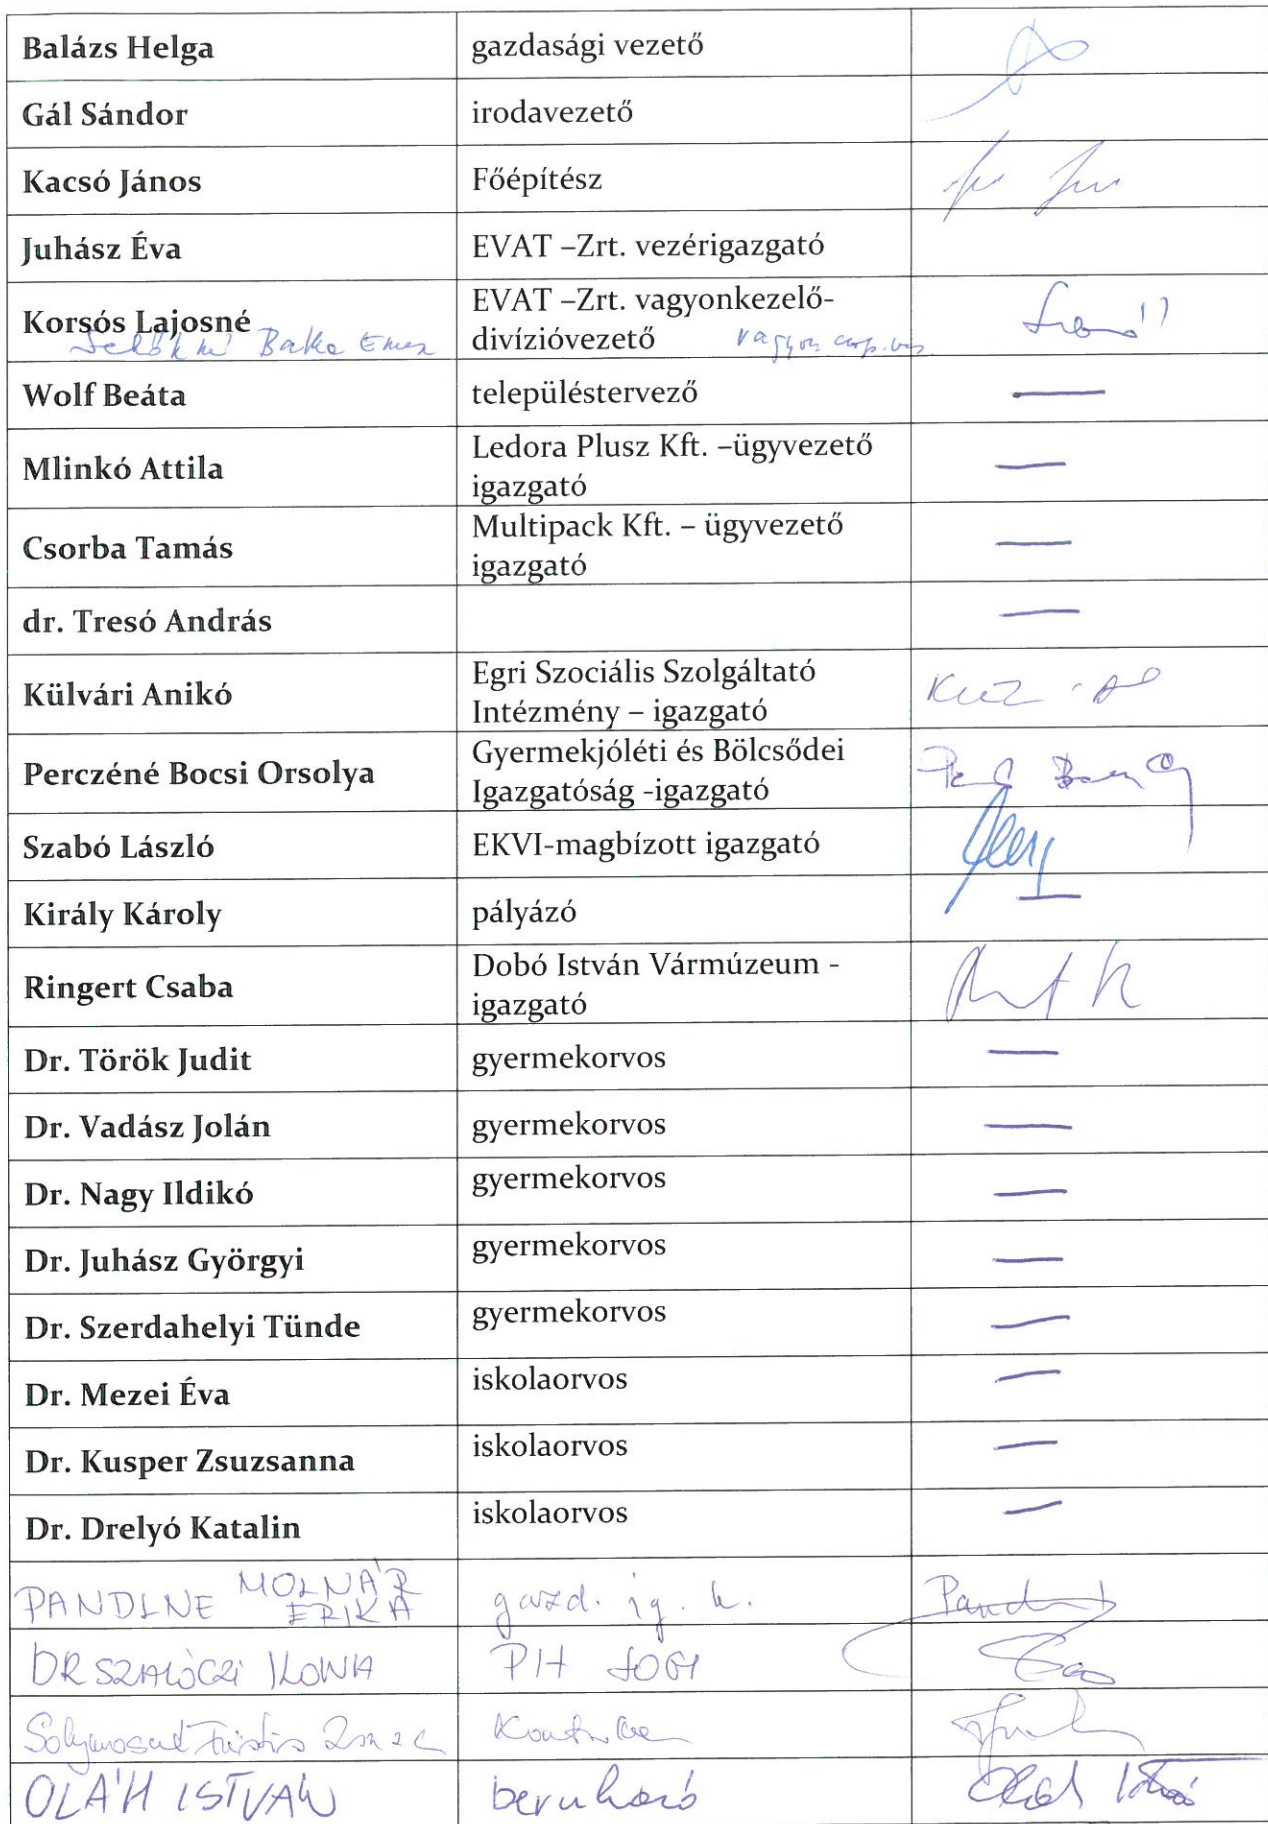 Balázs Helga gazdasági vezető
Gál Sándor irodavezető
Kacsó János Főépítész
Juhász Éva EVAT –Zrt. vezérigazgató
Korsós Lajosné EVAT –Zrt. vagyonkezelő-
divízióvezető
Wolf Beáta településtervező
Mlinkó Attila Ledora Plusz Kft. –ügyvezető
igazgató
Csorba Tamás Multipack Kft. – ügyvezető
igazgató
dr. Tresó András
Külvári Anikó Egri Szociális Szolgáltató
Intézmény – igazgató
Perczéné Bocsi Orsolya Gyermekjóléti és Bölcsődei
Igazgatóság -igazgató
Szabó László EKVI-magbízott igazgató
Király Károly pályázó
Ringert Csaba Dobó István Vármúzeum -
igazgató
Dr. Török Judit gyermekorvos
Dr. Vadász Jolán gyermekorvos
Dr. Nagy Ildikó gyermekorvos
Dr. Juhász Györgyi gyermekorvos
Dr. Szerdahelyi Tünde gyermekorvos
Dr. Mezei Éva iskolaorvos
Dr. Kusper Zsuzsanna iskolaorvos
Dr. Drelyó Katalin iskolaorvos
PANDINE MOLNÁR
ERIKA gazd. ig. h.
DR SZALÓCZI ILONA PIH
OLÁH ISTVÁN beruházó Oláh István